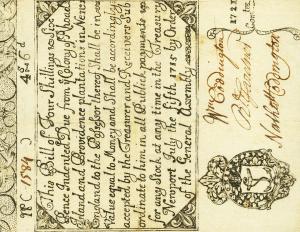 (1584) 4s 6d
This Bill of Four Shillings & Six
Pence Indented Due from ye Colony of Rhode
Island and Providence plantations in New
England to the Possessor thereof Shall be in
value equal to Money and Shall be accordingly
accepted by the Treasurer and Receivers Sub
ordinate to him in all Publick payments and
for any Stock at any time in the Treasury
Newport July the 5th 1715 by Order
of the General Assembly
1721